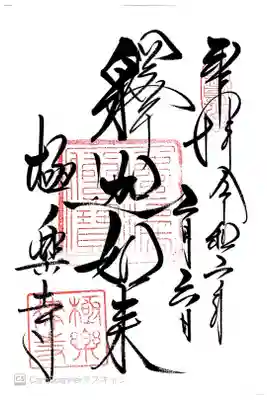 奉拝 令和
二月六日
釋迦如来
極楽寺
CS CamScannerでスキャン